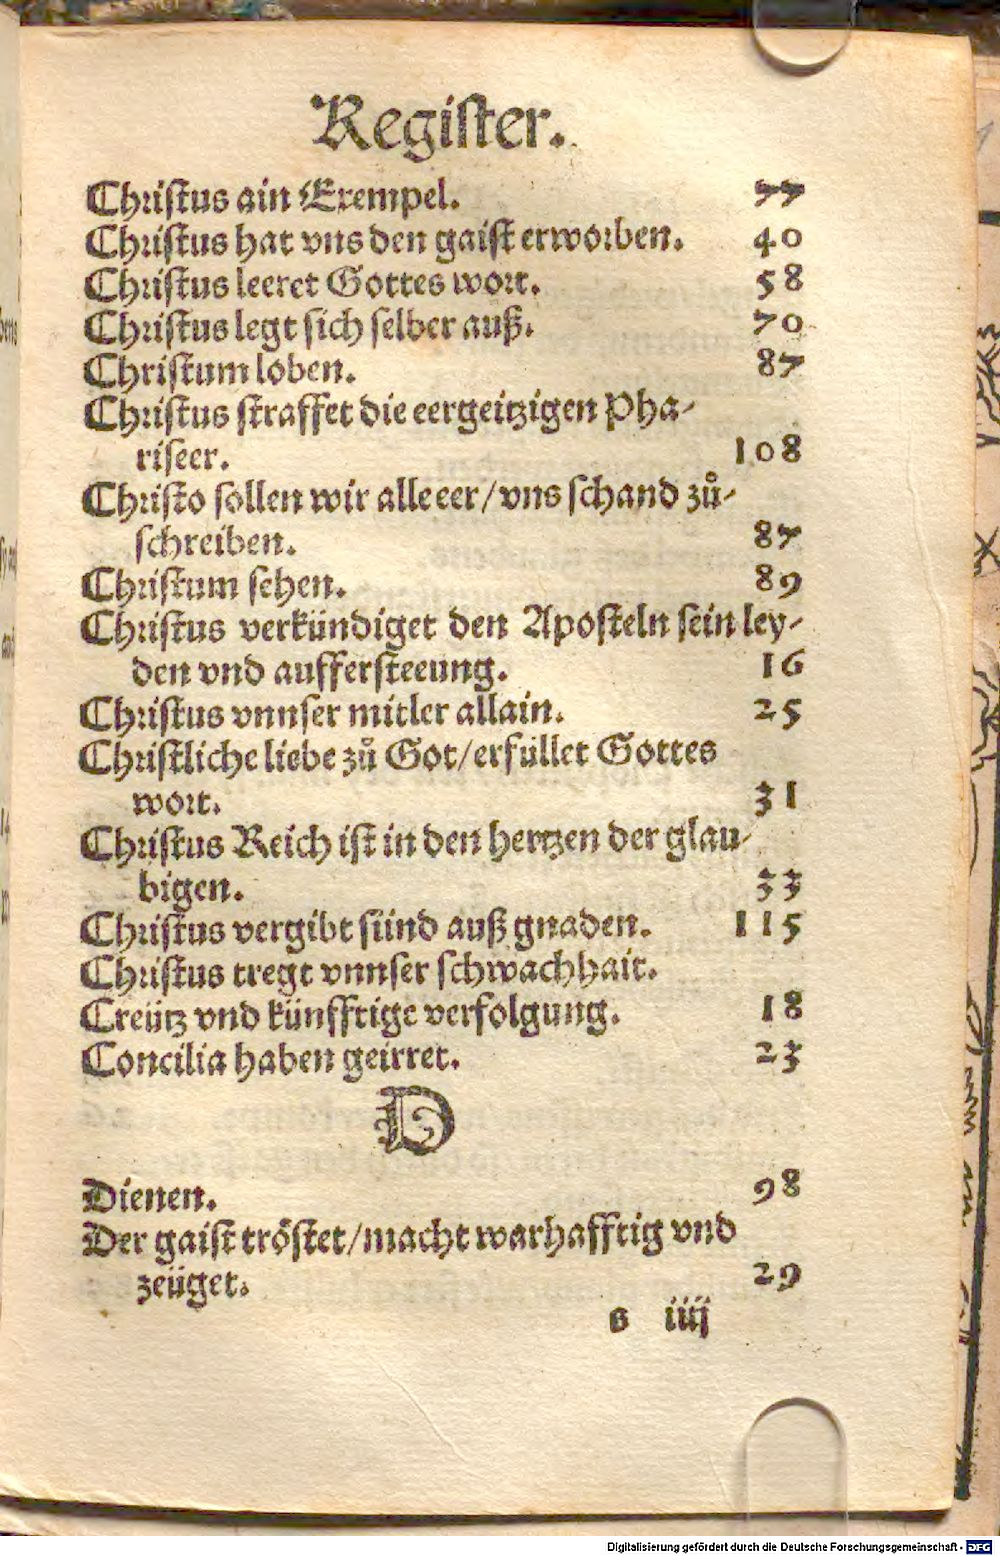 Register.
Christus ain Exempel. 77
Christus hat vns den gaist erworben. 40
Christus leeret Gottes wort. 58
Christus legt sich selber auß. 70
Christum loben. 87
Christus straffet die eergeitzigen Pha-
riseer. 108
Christo sollen wir alle eer/vns schand zů-
schreiben. 87
Christum sehen. 89
Christus verkündiget den Aposteln sein ley-
den vnd auffersteeung. 16
Christus vnnser mitler allain. 25
Christliche liebe zů Got/erfüllet Gottes
wort. 31
Christus Reich ist in den hertzen der glau-
bigen. 33
Christus vergibt sünd auß gnaden. 115
Christus tregt vnnser schwachhait.
Creütz vnd künfftige verfolgung. 18
Concilia haben geirret. 23
D
Dienen. 98
Der gaist tröstet/macht warhafftig vnd
zeüget. 29
s iiij
Digitalisierung gefördert durch die Deutsche Forschungsgemeinschaft - DFG